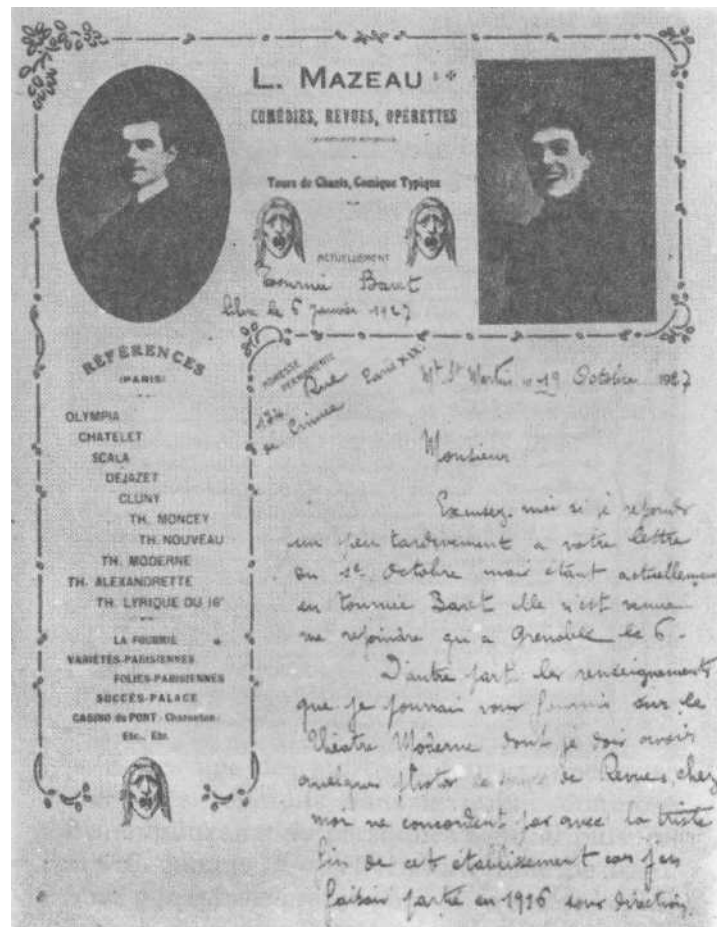 L. MAZEAU
COMÉDIES, REVUES, OPÉRETTES
Tours de Chants, Comique Typique
ACTUELLEMENT
Tournée Baret
libre le 6 janvier 1927
RÉFÉRENCES
(PARIS)
OLYMPIA
CHATELET
SCALA
DEJAZET
CLUNY
TH. MONCEY
TH. NOUVEAU
TH. MODERNE
TH. ALEXANDRETTE
TH. LYRIQUE DU 16e
LA FOURMIE
VARIÉTÉS-PARISIENNES
FOLIES-PARISIENNES
SUCCÈS-PALACE
CASINO du PONT - Charenton
Etc., Etc.
ADRESSE PERMANENTE
174 Rue Paris XIXe
de Crimée
Mt St Martin le 19 Octobre 1927
Monsieur
Excusez-moi si je réponds
un peu tardivement a votre lettre
du 1er Octobre mais étant actuellement
en tournée Baret elle n'est venue
me rejoindre qu'a Grenoble le 6.
D'autre part les renseignements
que je pourrais vous fournir sur le
Théatre Moderne dont je dois avoir
quelques photos de Revues, chez
moi ne concordent pas avec la triste
fin de cet établissement car j'en
faisais partie en 1916 sous direction